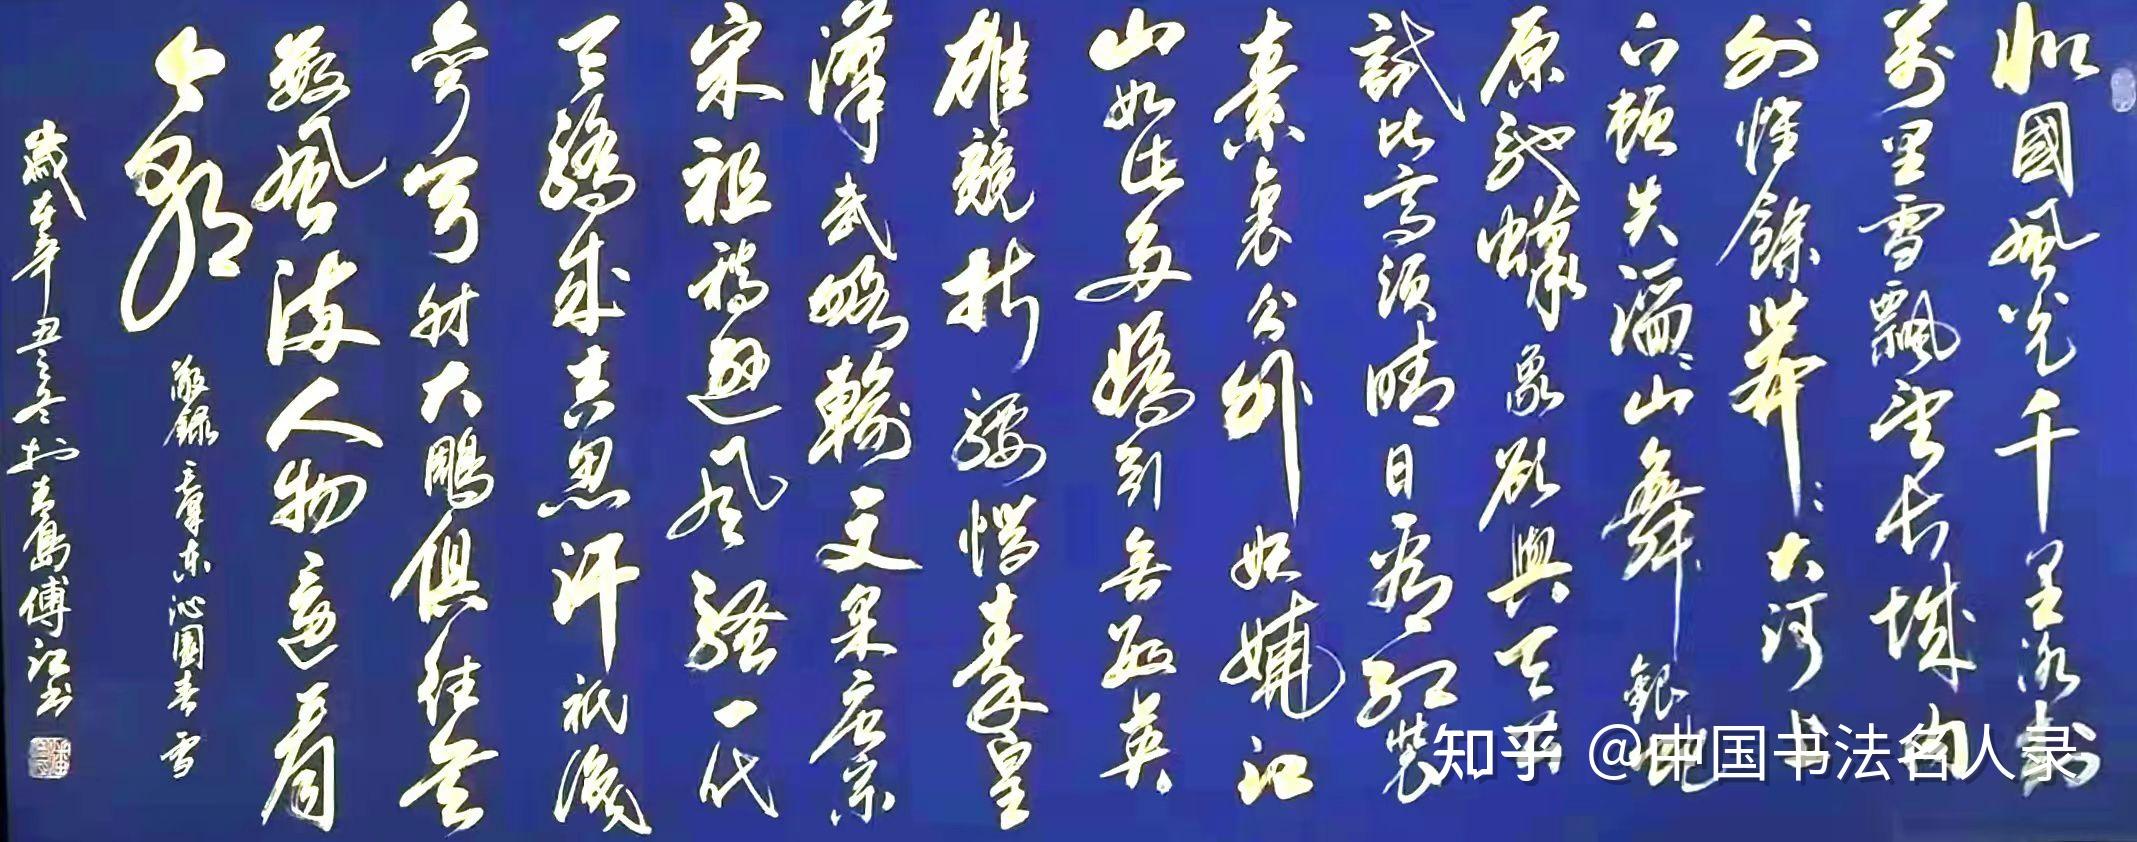 北國風光千里冰封
萬里雪飄望長城內
外惟餘莽〻大河上
下頓失滔〻山舞銀蛇
原馳蠟象欲與天公
試比高須晴日看紅裝
素裹分外妖嬈江
山如此多嬌引無數英
雄競折腰惜秦皇
漢武略輸文采唐宗
宋祖稍遜風騷一代
天驕成吉思汗祇識
彎弓射大鵰俱往矣
數風流人物還看
今朝
敬錄毛澤東沁園春雪
歲在辛丑之冬於青島傅江書
知乎 @中国书法名人录